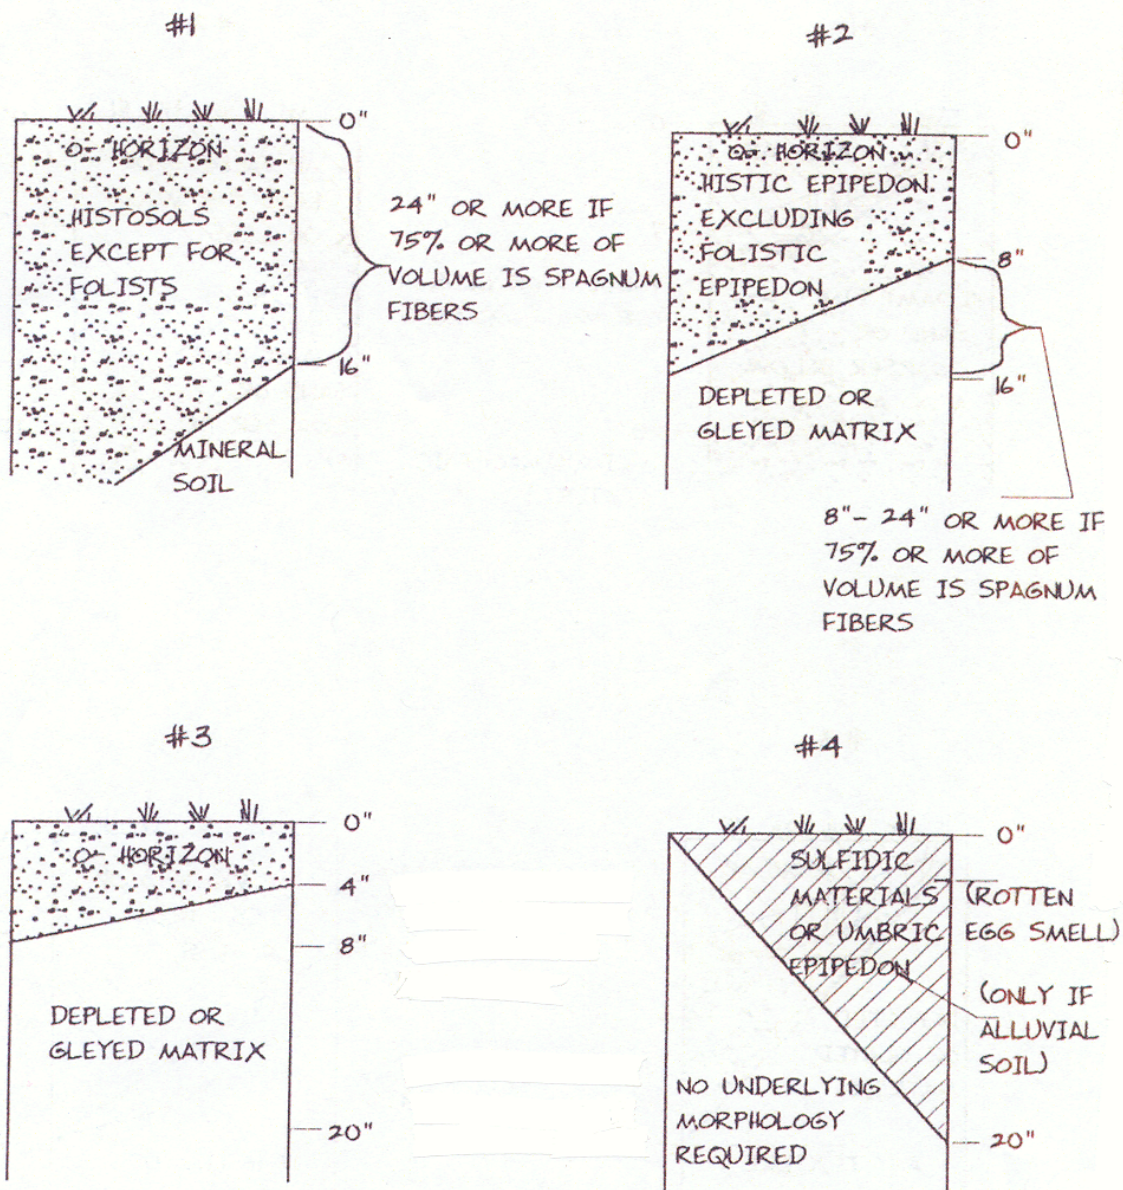 #1
0"
O- HORIZON
HISTOSOLS
EXCEPT FOR
FOLISTS
24" OR MORE IF
75% OR MORE OF
VOLUME IS SPAGNUM
FIBERS
16"
MINERAL
SOIL
#2
0"
O- HORIZON
HISTIC EPIPEDON
EXCLUDING
FOLISTIC
EPIPEDON
8"
16"
DEPLETED OR
GLEYED MATRIX
8"- 24" OR MORE IF
75% OR MORE OF
VOLUME IS SPAGNUM
FIBERS
#3
0"
O- HORIZON
4"
8"
DEPLETED OR
GLEYED MATRIX
20"
#4
0"
SULFIDIC
MATERIALS
OR UMBRIC
EPIPEDON
(ROTTEN
EGG SMELL)
(ONLY IF
ALLUVIAL
SOIL)
NO UNDERLYING
MORPHOLOGY
REQUIRED
20"